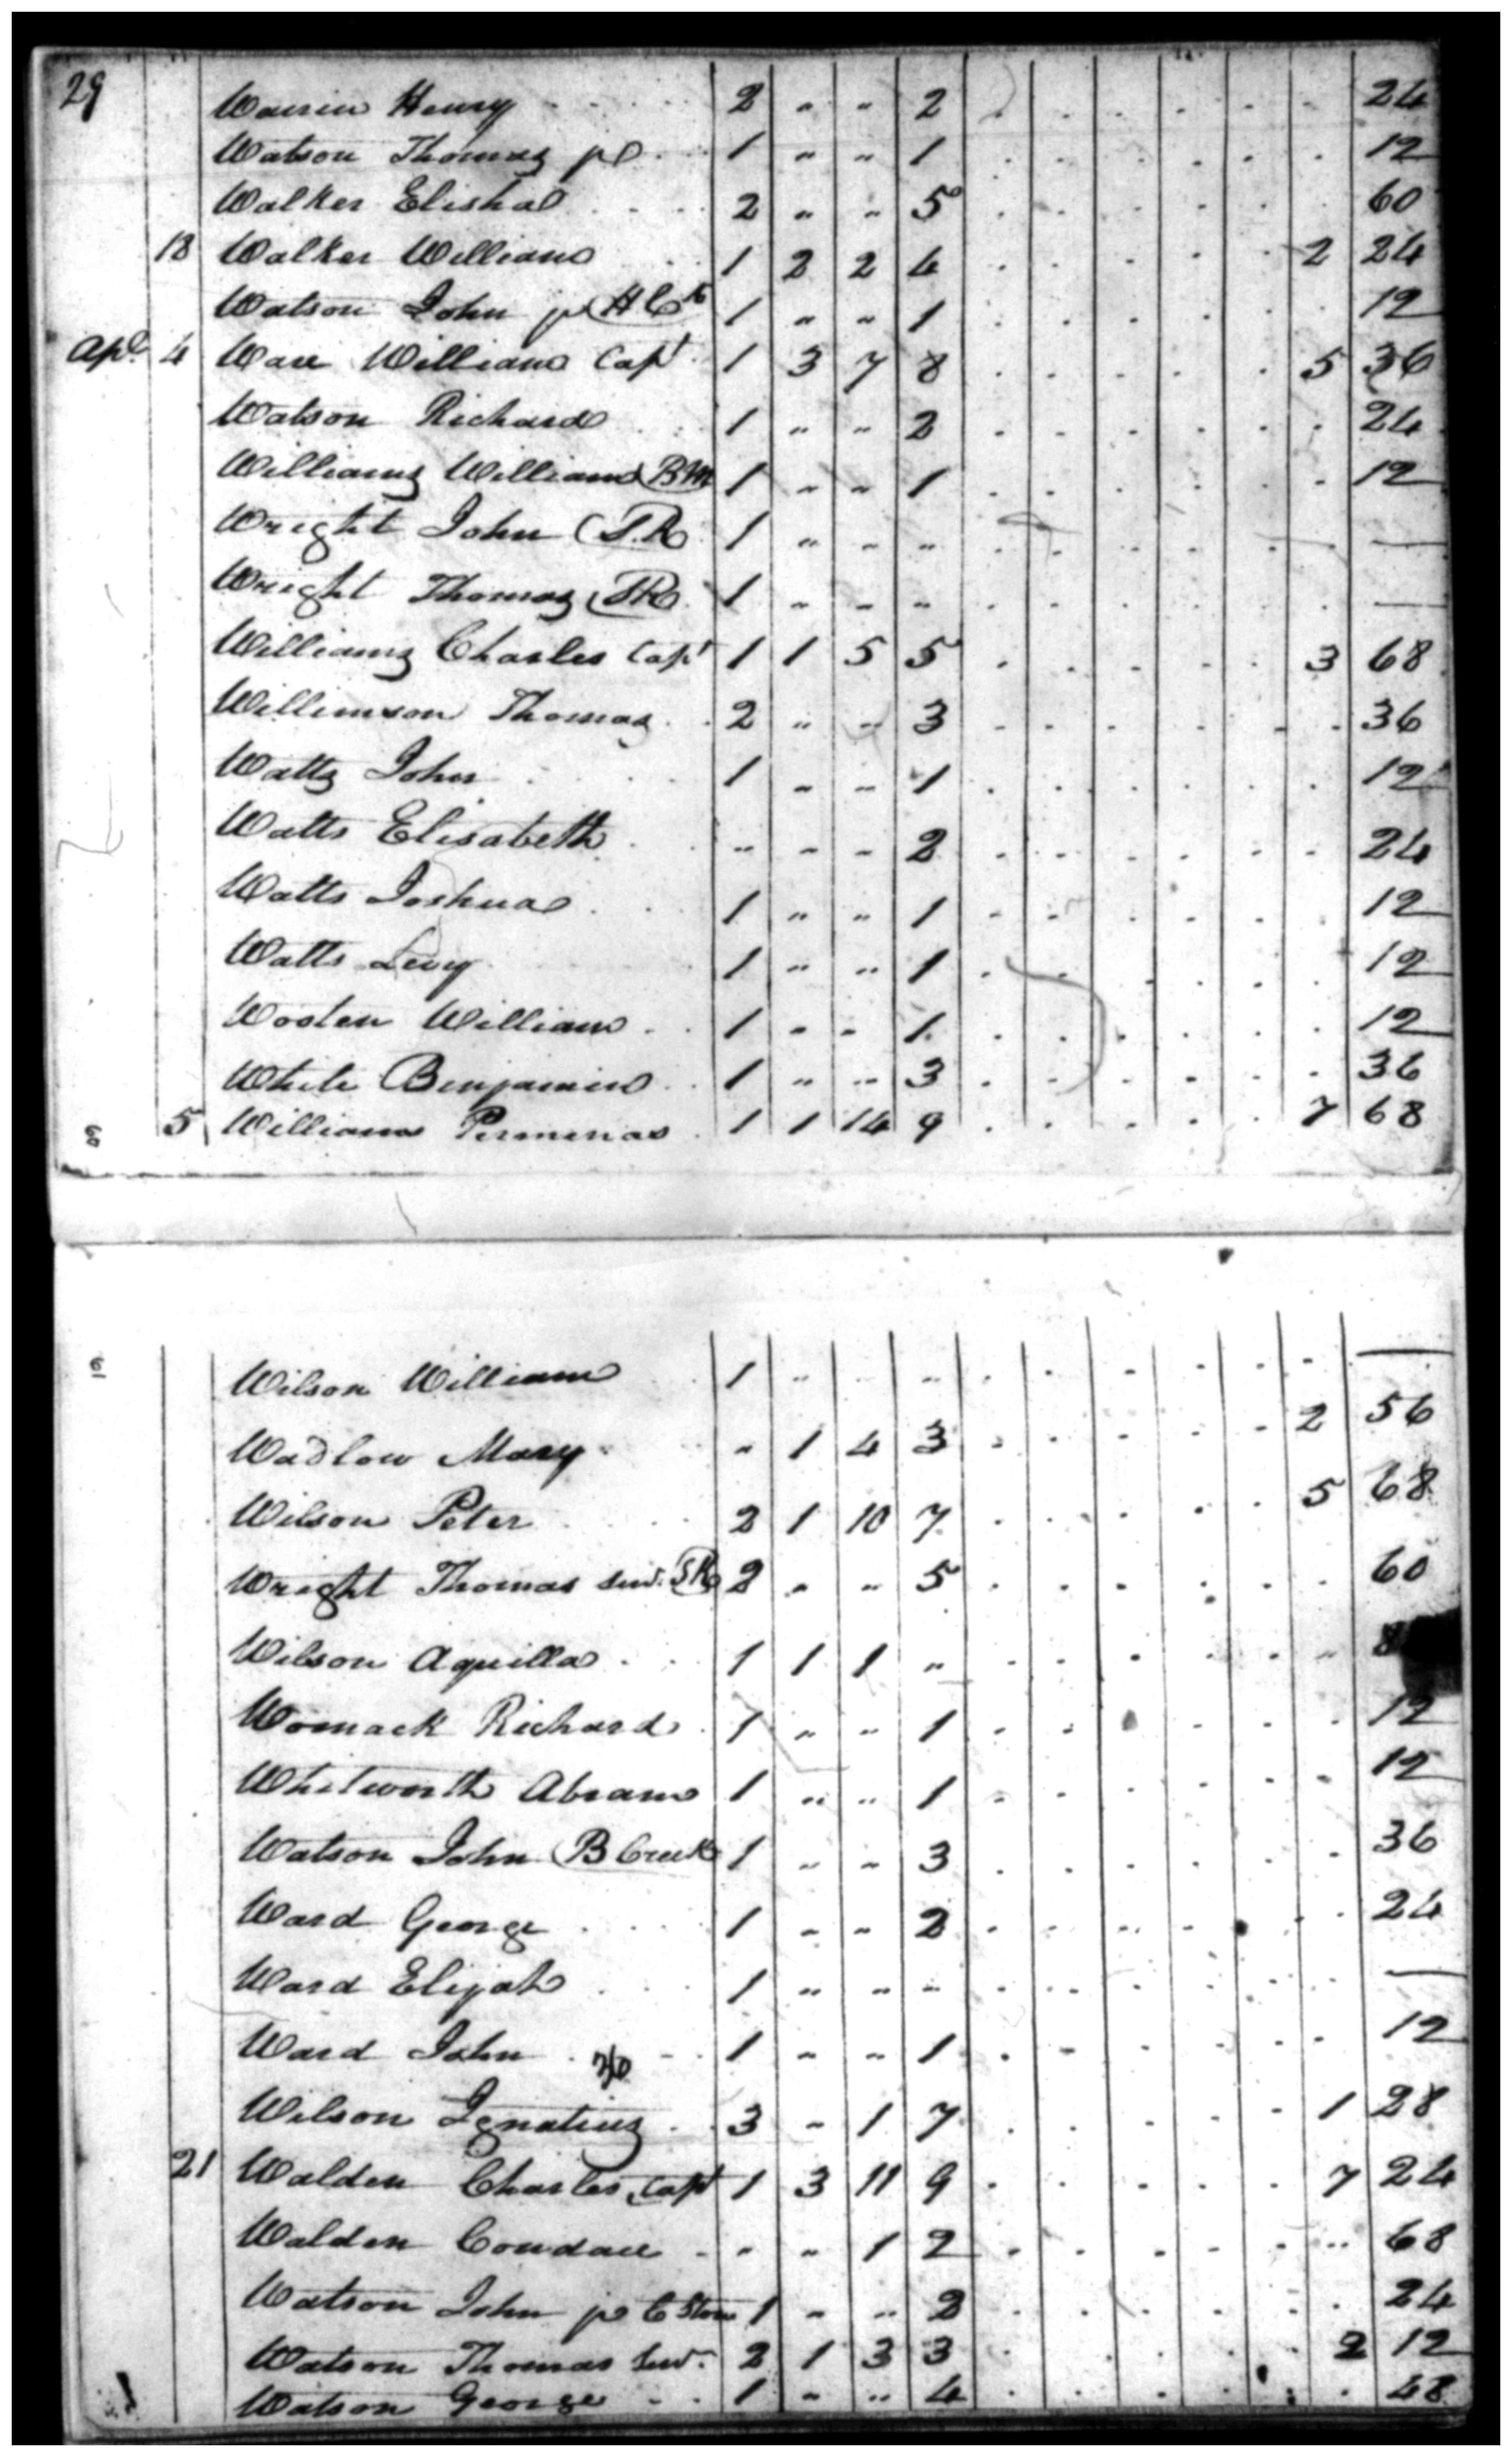 29 Warrin Henry 2 " " 2 24
Watson Thomas jr 1 " " 1 12
Walker Elisha 2 " " 5 60
18 Walker William 1 2 2 4 2 24
Watson John jr (H Ck 1 " " 1 12
Apl 4 Ware William Capt 1 3 7 8 5 36
Watson Richard 1 " " 2 24
Williams William (BM 1 " " 1 12
Wright John (S.R 1 " " " —
Wright Thomas (SR 1 " " " —
Williams Charles Capt 1 1 5 5 3 68
Willimson Thomas 2 " " 3 36
Watts John 1 " " 1 12
Watts Elisabeth " " " 2 24
Watts Joshua 1 " " 1 12
Watts Levy 1 " " 1 12
Wooten William 1 " " 1 12
White Benjamin 1 " " 3 36
60 5 Williams Permenas 1 1 14 9 7 68
61 Wilson William 1 " " " —
Wadlow Mary " 1 4 3 2 56
Wilson Peter 2 1 10 7 5 68
Wright Thomas senr. (SR 2 " " 5 60
Wilson Aquilla 1 1 1 "
Womack Richard 1 " " 1 12
Whitworth Abram 1 " " 1 12
Watson John (B Creek 1 " " 3 36
Ward George 1 " " 2 24
Ward Elijah 1 " " " —
Ward John 1 " " 1 12
Wilson Ignatius 3 " 1 7 1 28
21 Walden Charles Capt 1 3 11 9 7 24
Walden Condace " " 1 2 " 68
Watson John jr C Ston 1 " " 2 24
Watson Thomas senr. 2 1 3 3 2 12
Watson George 1 " " 4 48